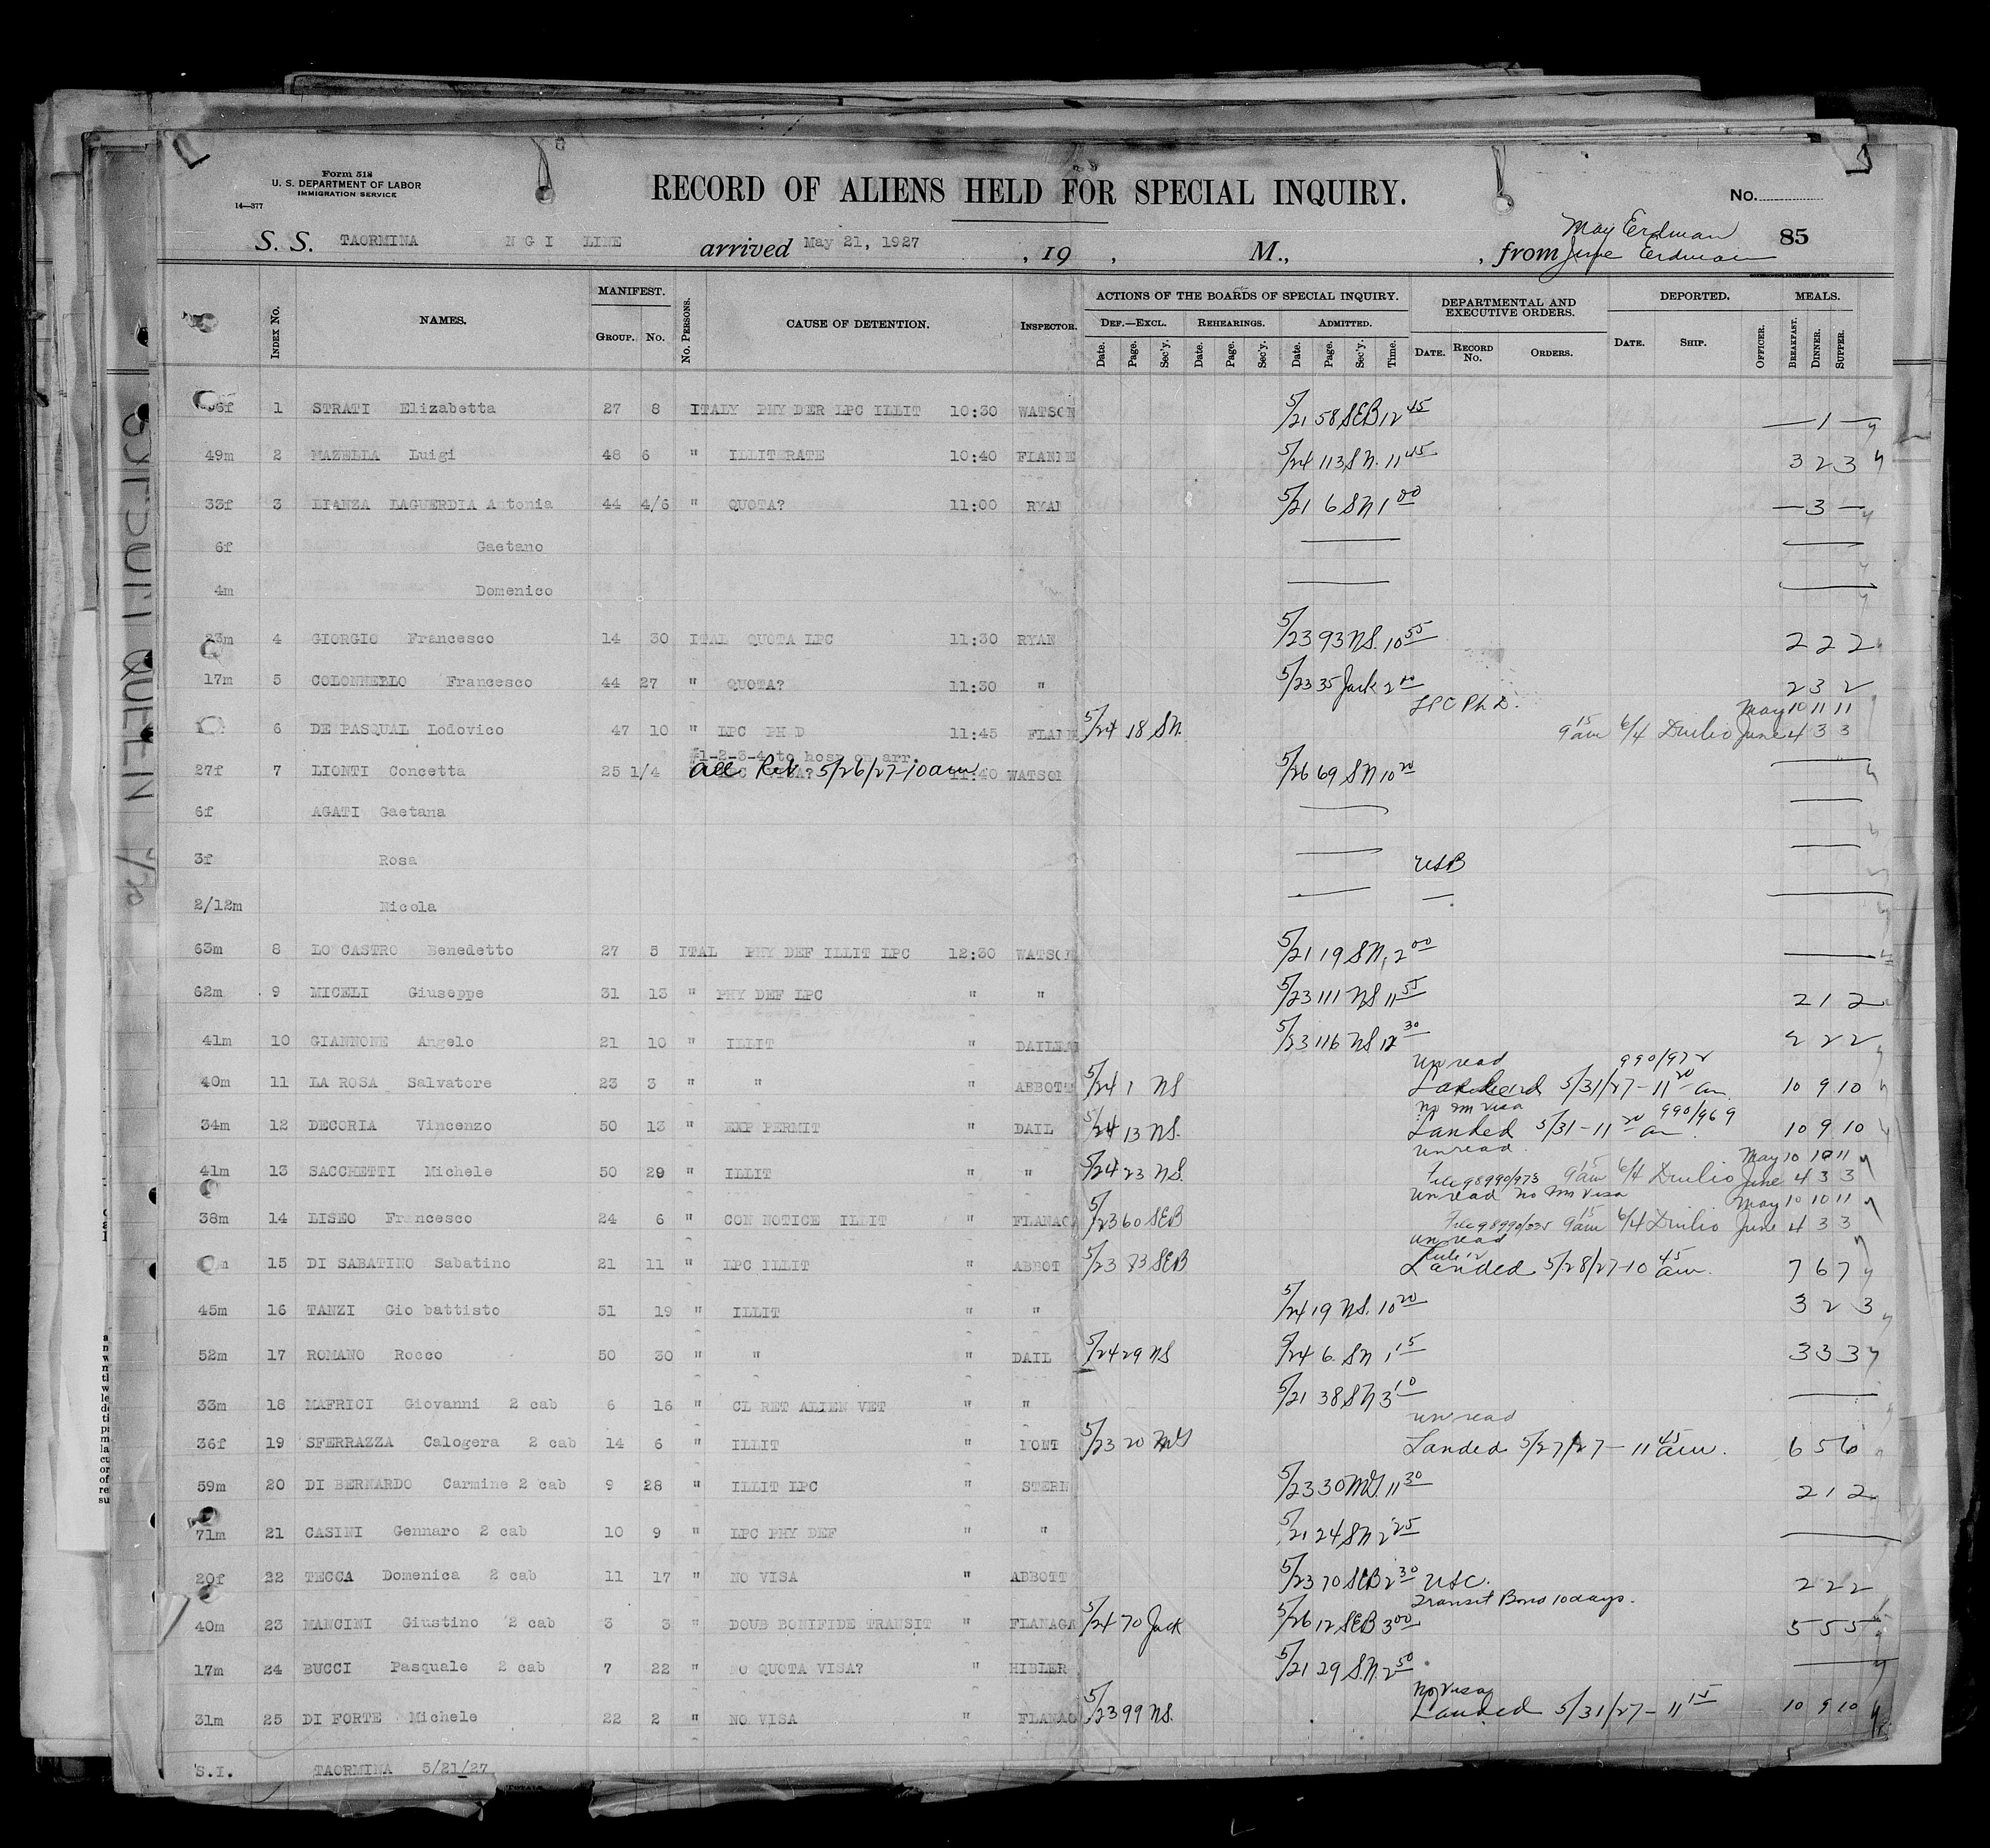 Form 518
U. S. DEPARTMENT OF LABOR
IMMIGRATION SERVICE
14—377
RECORD OF ALIENS HELD FOR SPECIAL INQUIRY.
No.
May Erdman
85
S. S. TAORMINA N G I LINE arrived May 21, 1927 , 19 , M., , from June Erdman
INDEX No. NAMES. MANIFEST. GROUP. No. No. PERSONS. CAUSE OF DETENTION. INSPECTOR. ACTIONS OF THE BOARDS OF SPECIAL INQUIRY. DEF.—EXCL. Date. Page. Sec'y. REHEARINGS. Date. Page. Sec'y. ADMITTED. Date. Page. Sec'y. Time. DEPARTMENTAL AND EXECUTIVE ORDERS. DATE. RECORD No. ORDERS. DEPORTED. DATE. SHIP. OFFICER. MEALS. BREAKFAST. DINNER. SUPPER.
1 STRATI Elizabetta 27 8 ITALY PHY DER LPC ILLIT 10:30 WATSON 5/21 58 SEB 12 45 — 1 —
49m 2 MAZELLA Luigi 48 6 " ILLITERATE 10:40 5/24 113 SN. 11 45 3 2 3
33f 3 LIANZA LAGUERDIA Antonia 44 4/6 " QUOTA? 11:00 RYAN 5/21 6 SN 1 00 — 3 —
6f Gaetano
4m Domenico
23m 4 GIORGIO Francesco 14 30 ITAL QUOTA LPC 11:30 RYAN 5/23 93 NS. 10 55 2 2 2
17m 5 COLONNELLO Francesco 44 27 " QUOTA? 11:30 " 5/23 35 Jack 2 00 2 3 2
LPC Ph D. May 10 11 11
6 DE PASQUAL Lodovico 47 10 " LPC PH D 11:45 FLANE 5/24 18 SN. 9 15 am 6/4 Duilio June 4 3 3
#1-2-3-4 to hosp on arr.
27f 7 LIONTI Concetta 25 1/4 all Rel. 5/26/27-10am 11:40 WATSON 5/26 69 SN 10 20
6f AGATI Gaetana
3f Rosa USB
2/12m Nicola —
63m 8 LO CASTRO Benedetto 27 5 ITAL PHY DEF ILLIT LPC 12:30 WATSON 5/21 19 SN, 2 00
62m 9 MICELI Giuseppe 31 13 " PHY DEF LPC " " 5/23 111 NS 11 55 2 1 2
41m 10 GIANNONE Angelo 21 10 " ILLIT " 5/23 116 NS 12 30 2 2 2
unread 990/972
40m 11 LA ROSA Salvatore 23 3 " " " ABBOTT 5/24 1 NS Landed 5/31/27-11 20 am 10 9 10
no im visa 990/969
34m 12 DECORIA Vincenzo 50 13 " EXP PERMIT " DAIL 5/24 13 NS. Landed 5/31-11 20 am. 10 9 10
unread May 10 10 11
41m 13 SACCHETTI Michele 50 29 " ILLIT " " 5/24 23 NS. File 98990/973 9 15 am 6/4 Duilio June 4 3 3
unread no im visa May 10 10 11
38m 14 LISEO Francesco 24 6 " CON NOTICE ILLIT " FLANAGA 5/23 60 SEB File 98990/335 9 15 am 6/4 Duilio June 4 3 3
unread
15 DI SABATINO Sabatino 21 11 " LPC ILLIT " ABBOT 5/23 73 SEB Landed 5/28/27-10 45 am. 7 6 7
45m 16 TANZI Gio battisto 31 19 " ILLIT " " 5/24 19 NS. 10 20 3 2 3
52m 17 ROMANO Rocco 50 30 " " " DAIL 5/24 29 NS 5/24 6 SN 1 15 3 3 3
33m 18 MAFRICI Giovanni 2 cab 6 16 " CL RET ALIEN VET " " 5/21 38 SN 3 10
unread
36f 19 SFERRAZZA Calogera 2 cab 14 6 " ILLIT " MONT 5/23 20 Landed 5/27/27-11 45 am. 6 5 6
59m 20 DI BERNARDO Carmine 2 cab 9 28 " ILLIT LPC STERN 5/23 30 11 30 2 1 2
71m 21 CASINI Gennaro 2 cab 10 9 " LPC PHY DEF " " 5/21 24 SN 2 25
20f 22 TECCA Domenica 2 cab 11 17 " NO VISA " ABBOTT 5/23 70 SEB 2 30 USC. 2 2 2
Transit Bond 10 days.
40m 23 MANCINI Giustino 2 cab 3 3 " DOUB BONIFIDE TRANSIT " FLANAGA 5/24 70 Jack 5/26 12 SEB 3 00 5 5 5
17m 24 BUCCI Pasquale 2 cab 7 22 " NO QUOTA VISA? " HIBLER 5/21 29 S.N. 2 50
No Visa
31m 25 DI FORTE Michele 22 2 " NO VISA " FLANAG 5/23 99 NS. Landed 5/31/27-11 15 10 9 10
S.I. TAORMINA 5/21/27